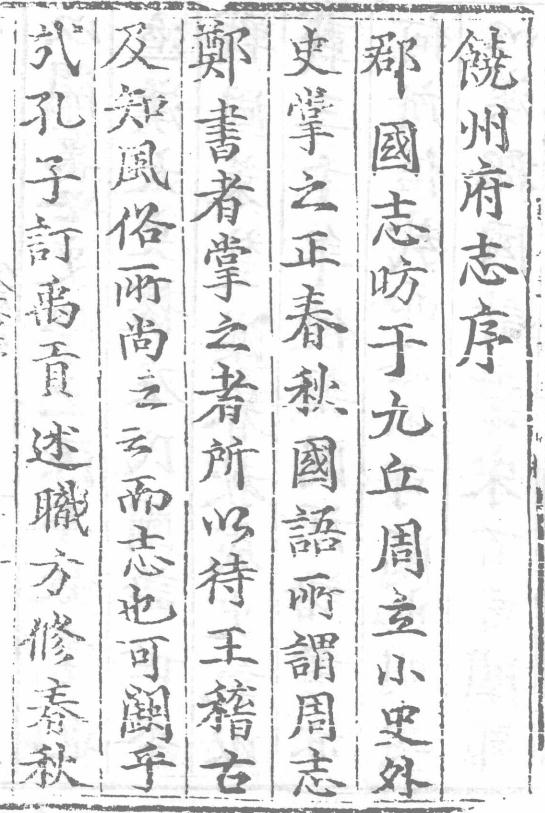 饒州府志序
郡國志昉于九丘周立小史外
史掌之正春秋國語所謂周志
鄭書者掌之者所以待王稽古
及知風俗所尚之云而志也可闕乎
弐孔子訂禹貢述職方修春秋